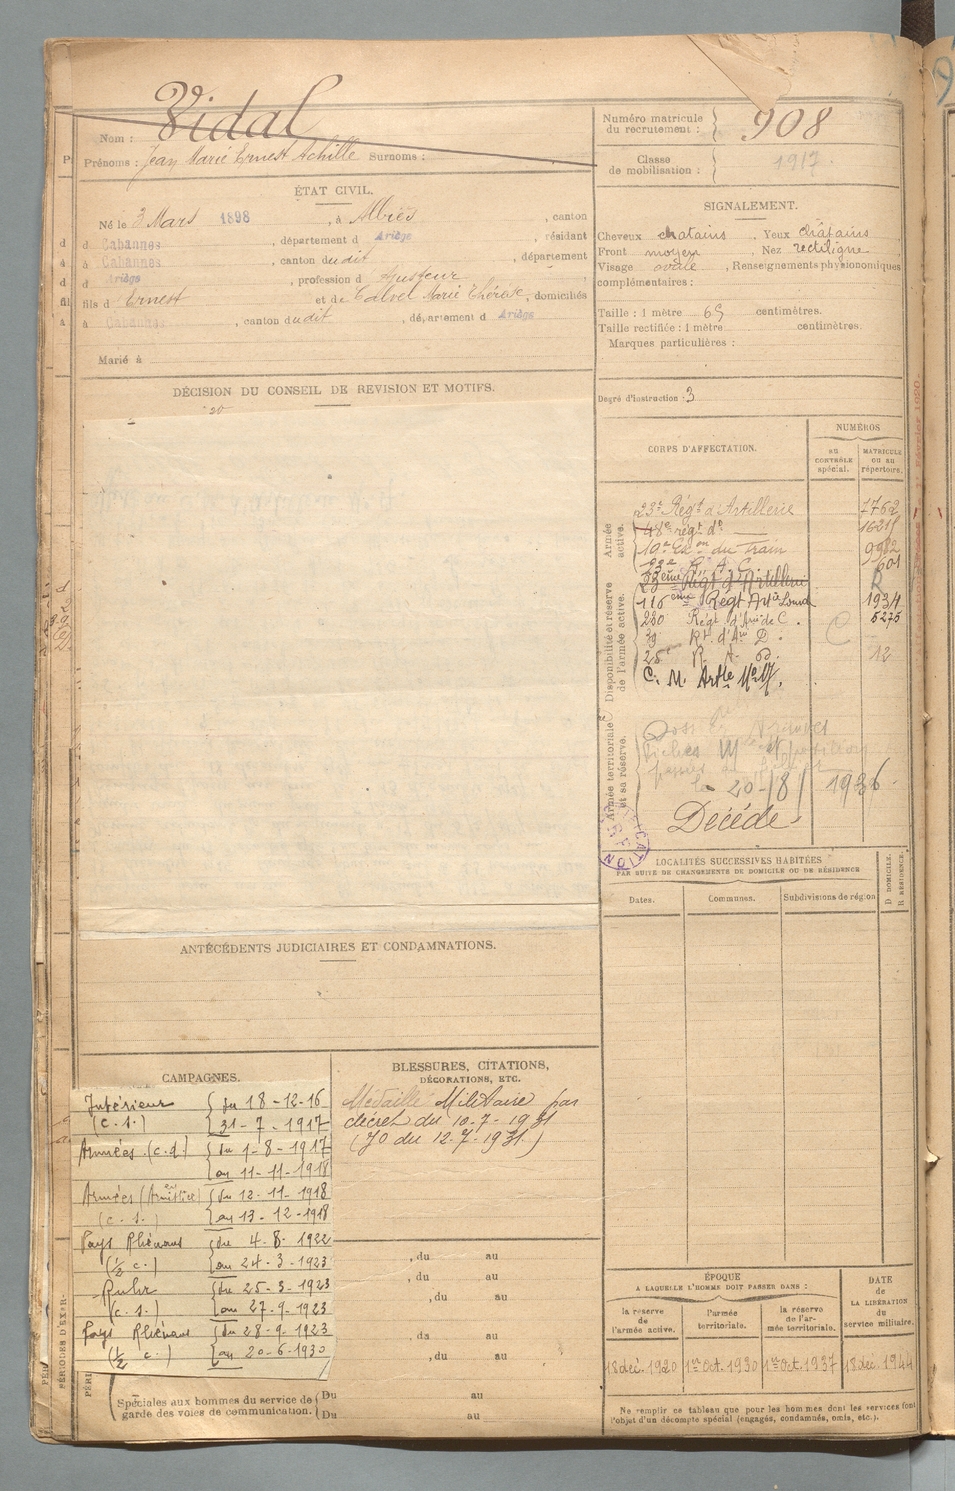 Nom : Vidal
Prénoms : Jean Marie Ernest Achille Surnoms :
Numéro matricule
du recrutement : 908
Classe
de mobilisation : 1917
ÉTAT CIVIL.
Né le 3 Mars 1898, à Albiès, canton
d Cabannes, département d Ariège, résidant
à Cabannes, canton dudit, département
d Ariège, profession d'
fils d'Ernest et de Calvet Marie Thérèse, domiciliés
à Cabannes, canton dudit, département d Ariège
Marié à
SIGNALEMENT.
Cheveux chatains. Yeux châtains
Front moyen, Nez rectiligne
Visage ovale, Renseignements physionomiques
complémentaires :
Taille : 1 mètre 65 centimètres.
Taille rectifiée : 1 mètre centimètres.
Marques particulières :
Degré d'instruction : 3
DÉCISION DU CONSEIL DE REVISION ET MOTIFS.
CORPS D'AFFECTATION.
NUMÉROS
AU CONTRÔLE spécial.
MATRICULE OU AU répertoire.
Armée active.
23e Régt d'Artillerie 7762
48e régt do
19e Eson du Train 9982
23e R. A. C. 601
Disponibilité et réserve de l'armée active.
23ème Régt d'Artillerie
116ème Régt Art à Lourde 1934
230 Régt d'Am de C. 5275
39 Rt. d'Am D.
25e R. A. D. 12
C. M. Artie
Armée territoriale et sa réserve.
le 20-/8/ 1936
Décédé
LOCALITÉS SUCCESSIVES HABITÉES
PAR SUITE DE CHANGEMENTS DE DOMICILE OU DE RÉSIDENCE
Dates.
Communes.
Subdivisions de région
D DOMICILE.
R RÉSIDENCE.
ANTÉCÉDENTS JUDICIAIRES ET CONDAMNATIONS.
CAMPAGNES.
Intérieur { du 18-12-16
(c.s.) { 31-7-1917
Armées (c.d.) { du 1-8-1917
{ au 11-11-1918
Armées (Armistice) { du 12-11-1918
(c.s.) { au 13-12-1918
Pays Rhénans { du 4-8-1922
(½ c.) { au 24-3-1923
Ruhr { du 25-3-1923
(c.s.) { au 27-9-1923
Pays Rhénans { du 28-9-1923
(½ c.) { au 20-6-1930
BLESSURES, CITATIONS,
DÉCORATIONS, ETC.
Médaille Militaire par
décret du 10-7-1931
(JO du 12-7-1931)
, du au
, du au
, du au
, du au
, du au
Spéciales aux hommes du service de
garde des voies de communication. { Du au
{ Du au
ÉPOQUE
A LAQUELLE L'HOMME DOIT PASSER DANS :
la réserve
de
l'armée active.
l'armée
territoriale.
la réserve
de l'ar-
mée territoriale.
DATE
de
LA LIBÉRATION
du
service militaire.
18 déc. 1920
1er Oct. 1930
1er Oct. 1937
18 déc. 1944
Ne remplir ce tableau que pour les hommes dont les services font
l'objet d'un décompte spécial (engagés, condamnés, omis, etc.).